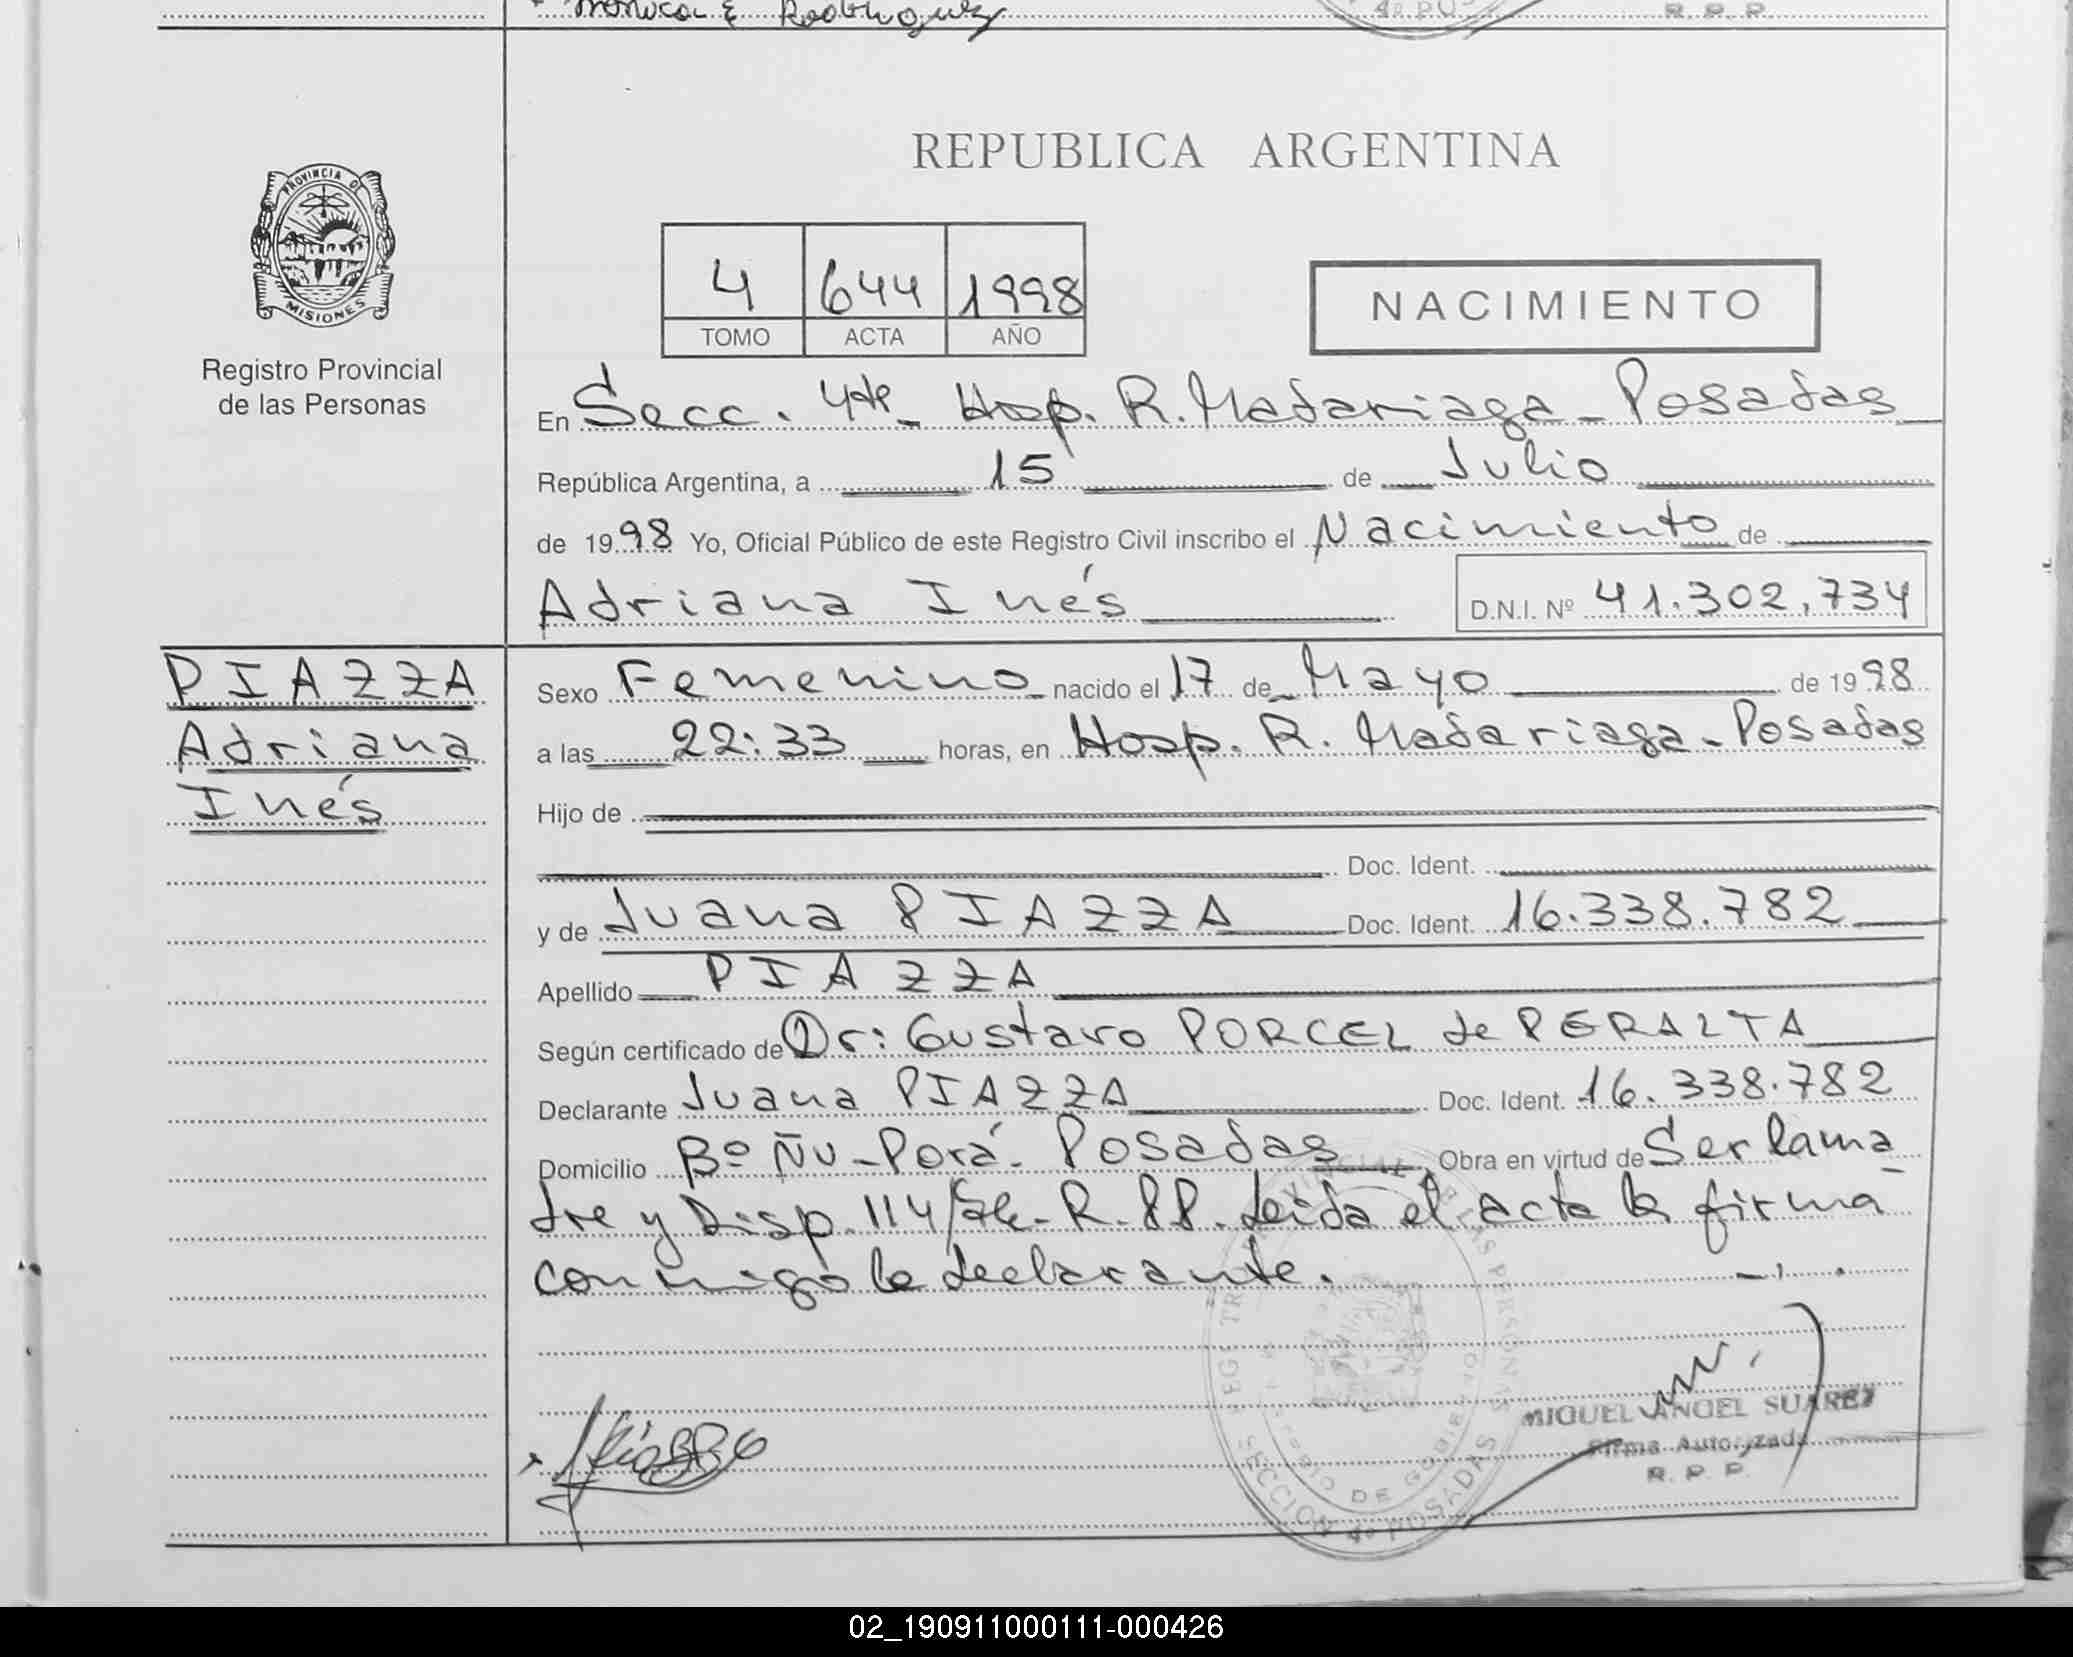 Monica E Rodriguez
4º PO
R. P. P.
PROVINCIA DE
MISIONES
Registro Provincial
de las Personas
REPUBLICA ARGENTINA
4 644 1998
TOMO ACTA AÑO
NACIMIENTO
En Secc. 4ta - Hosp. R. Madariaga - Posadas
República Argentina, a 15 de Julio
de 1998 Yo, Oficial Público de este Registro Civil inscribo el Nacimiento de
Adriana Inés D.N.I. Nº 41.302.734
PIAZZA
Adriana
Inés
Sexo Femenino nacido el 17 de Mayo de 1998
a las 22:33 horas, en Hosp. R. Madariaga - Posadas
Hijo de
Doc. Ident.
y de Juana PIAZZA Doc. Ident. 16.338.782
Apellido PIAZZA
Según certificado de Dr: Gustavo PORCEL de PERALTA
Declarante Juana PIAZZA Doc. Ident. 16.338.782
Domicilio Bº Ñu-Porá - Posadas Obra en virtud de Ser la ma
dre y Disp. 114/ R.PP. Leída el acta la firma
conmigo la declarante.
Piazza
MIGUEL ANGEL SUAREZ
Firma Autorizada
R. P. P.
SECCION 4º POSADAS
02_190911000111-000426